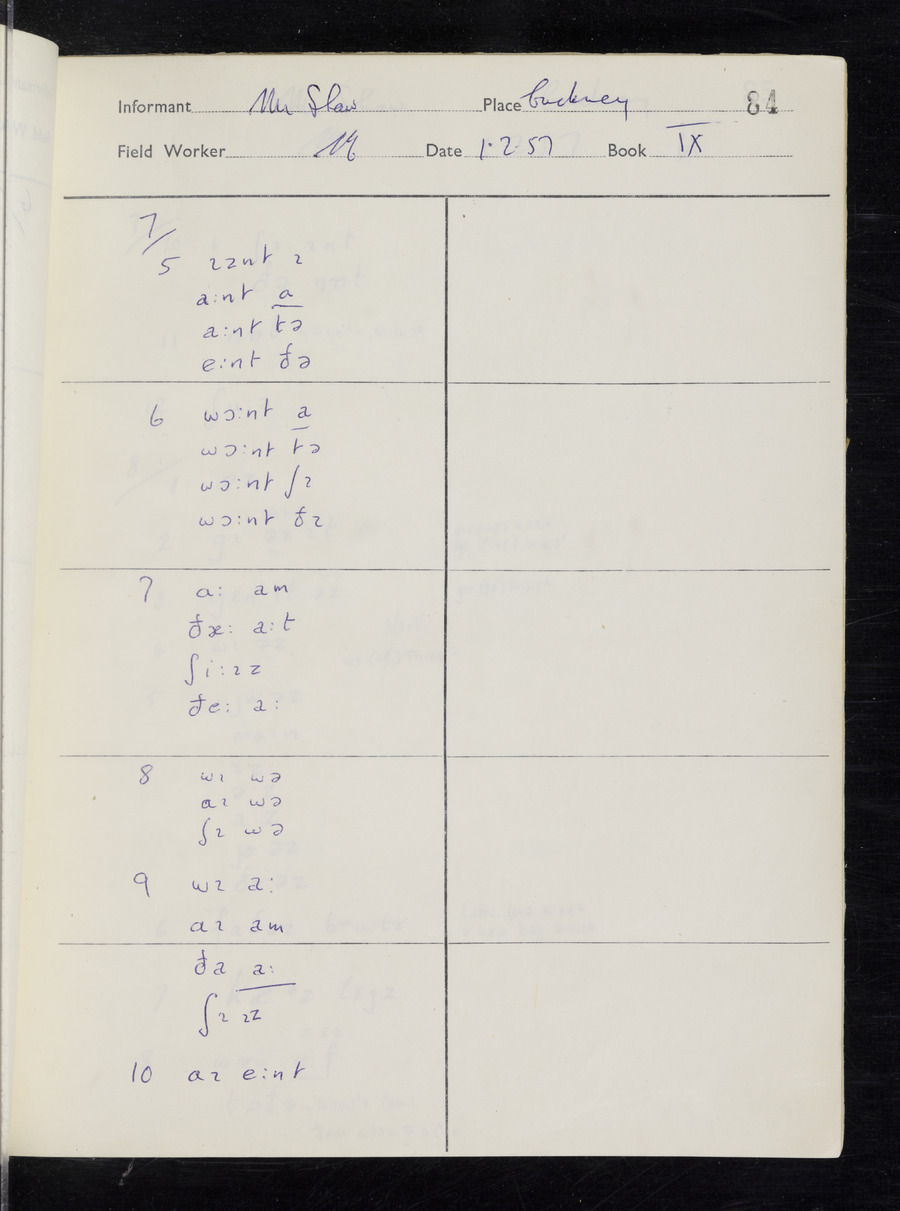 Informant Mr Shaw Place Cuckney 84
Field Worker Date 1·2·57 Book IX
7/
5 ɪzn̩t ɪ
a:nt a
a:nt tə
e:nt ðə
6 wɔ:nt a
wɔ:nt tə
wɔ:nt ʃɪ
wɔ:nt ðɪ
7 a: am
ðæ: a:t
ʃi: ɪz
ðe: a:
8 wɪ wə
aɪ wə
ʃɪ wə
9 wɪ a:
aɪ am
ða a:
ʃɪ ɪz
10 aɪ e:nt